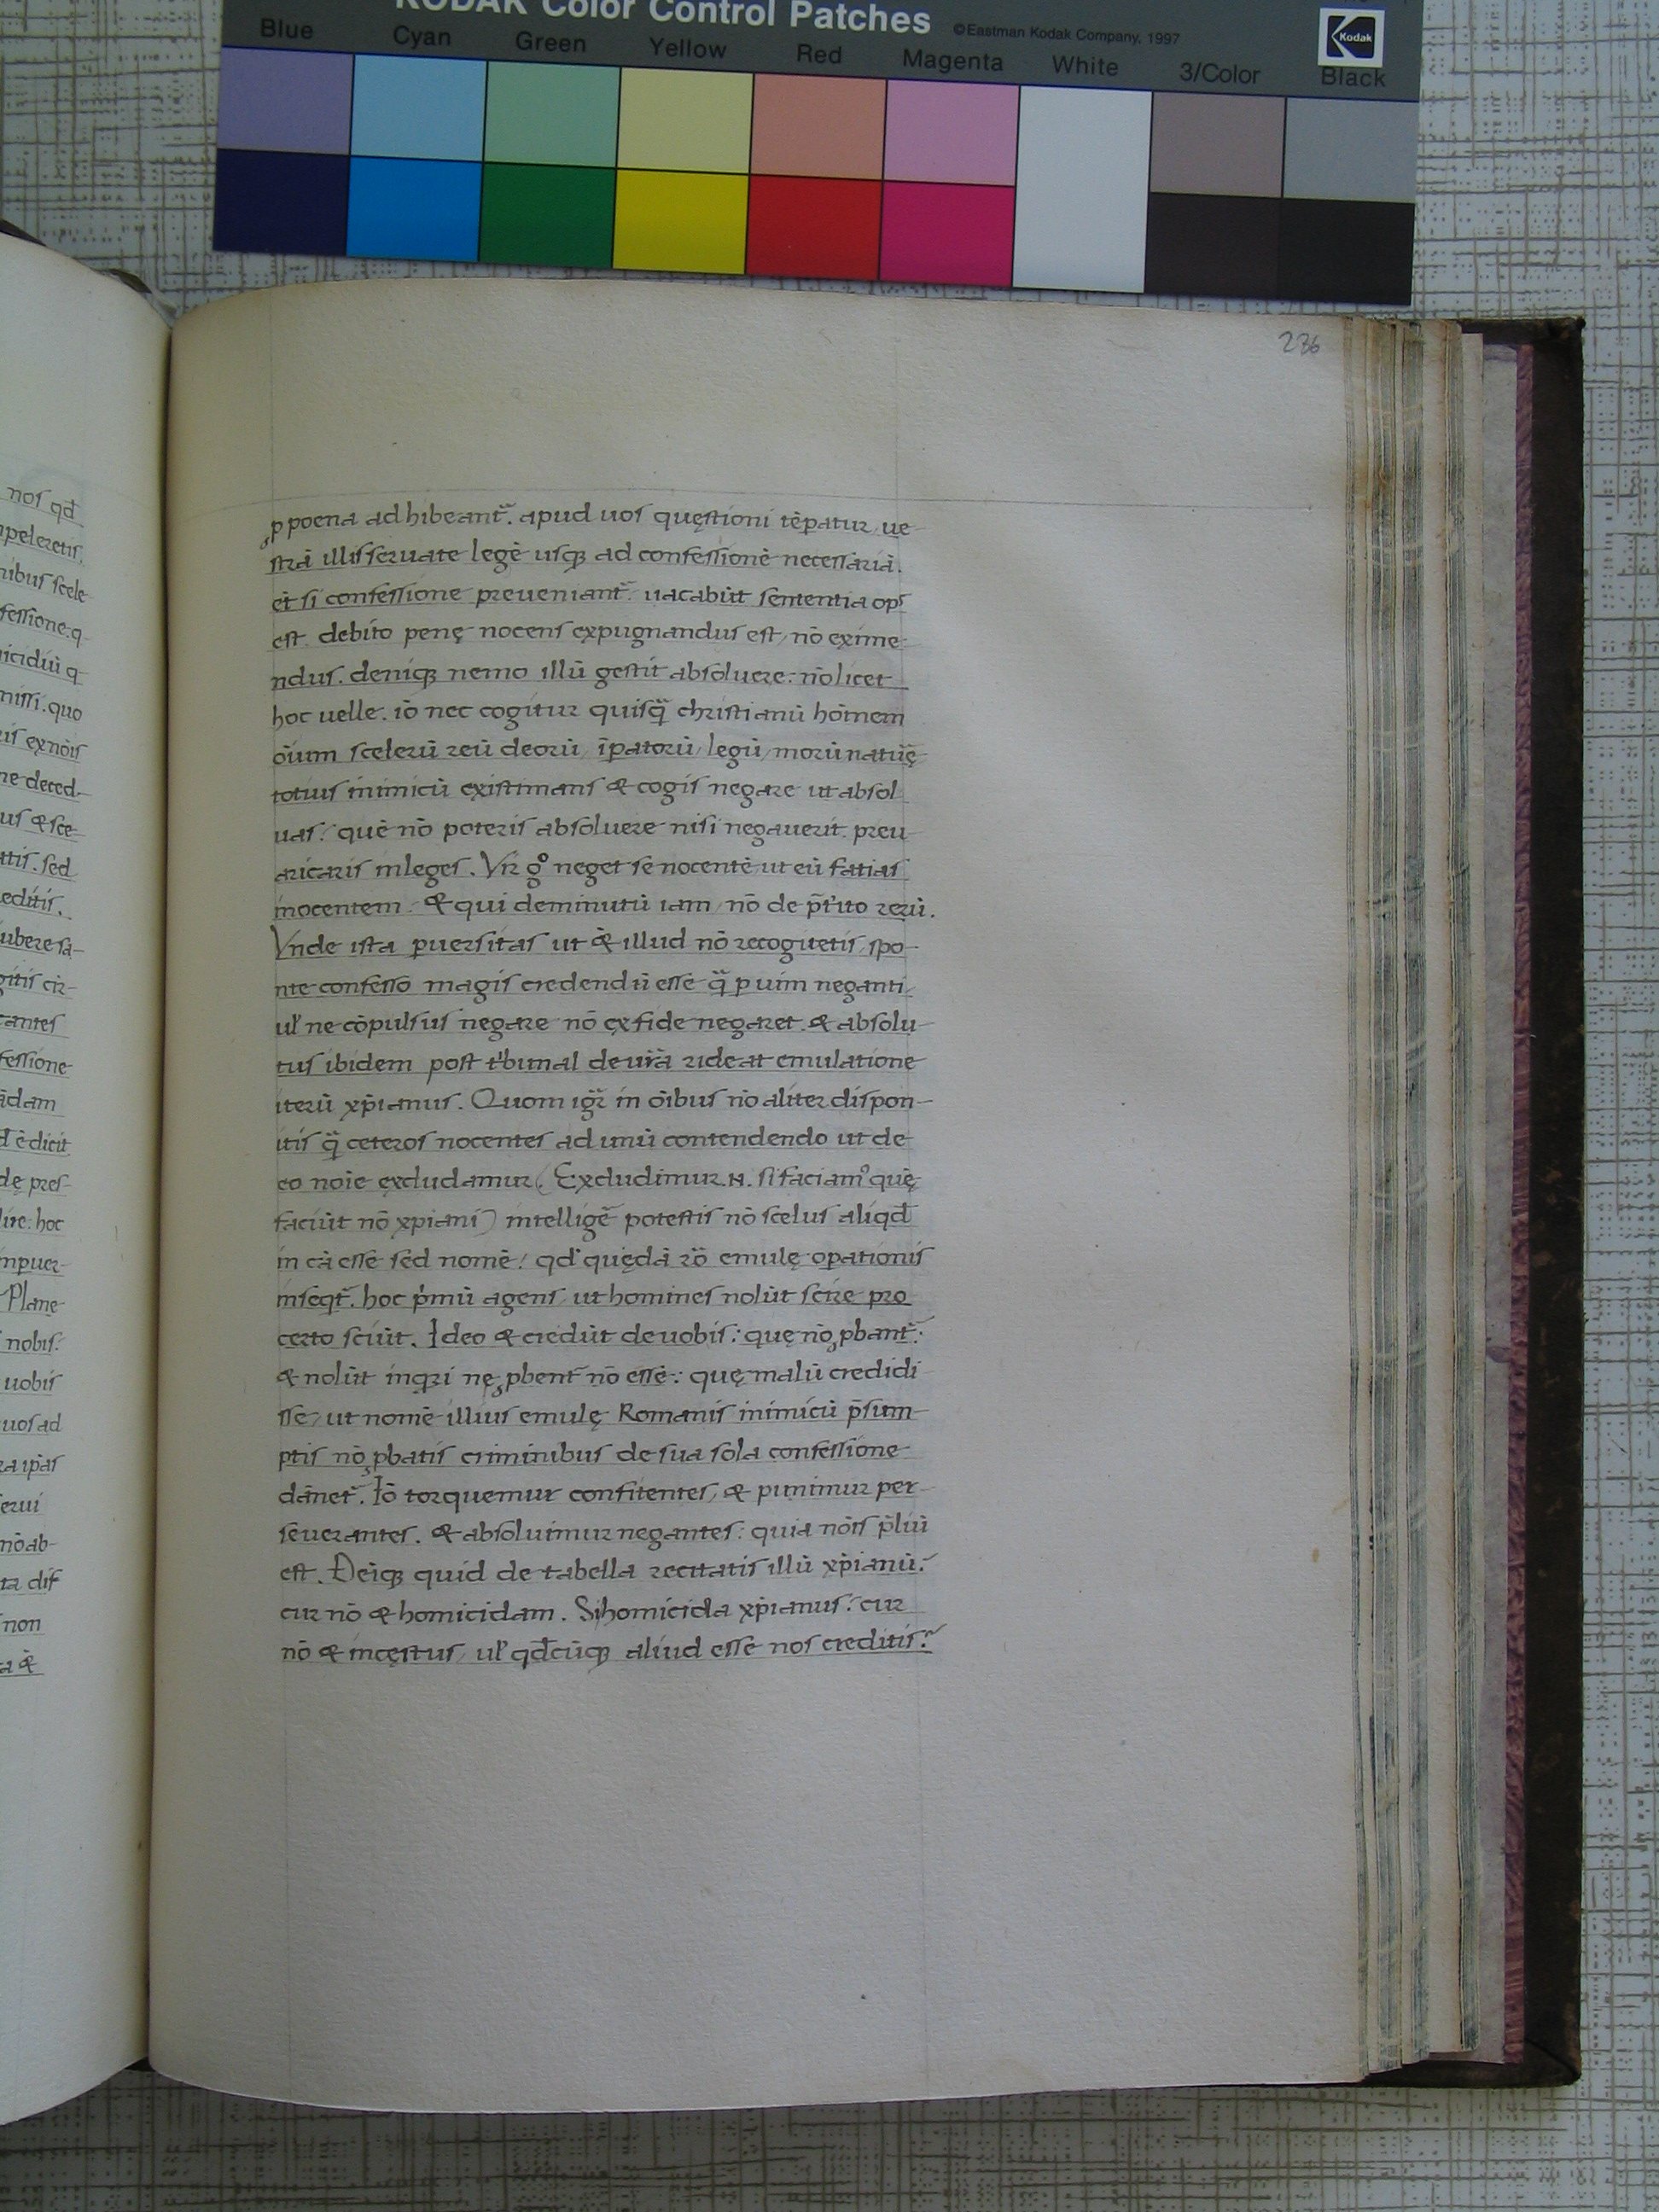 KODAK Color Control Patches ©Eastman Kodak Company, 1997
Kodak
Blue Cyan Green Yellow Red Magenta White 3/Color Black
236
nos qd̄
peleretis.
nibus scele
fessione. q
icidiū q
missi. quo
is ex nōis
ne deced-
us & sce-
atis. sed
editis.
ubere sa-
gitis cir-
tantes
fessione
ādam
d̄ ē dicit
dę pres-
lire. hoc
npuer-
Plane
nobis.
uobis
uos ad
ra ip̄as
serui
nō ab-
ta dis
non
ta &
ꝓ poena adhibeant᷑. apud uos quęstioni tēpatur, ue-
strā illis seruate legē usqꝫ ad confessionē necessariā.
et si confessione preueniant᷑. uacabūt sententia opꝰ
est. debito penę nocens expugnandus est, nō exime-
ndus. deniqꝫ nemo illū gestit absoluere: nō licet
hoc uelle. iō nec cogitur quisq̄ christianū hōinem
ōium scelerū reū deorū, īpatorū, legū, morū natūę
totius inimicū existimans & cogis negare ut absol
uas. quē nō poteris absoluere nisi negauerit. preu-
aricaris in leges. Vis gͦ neget se nocentē, ut eū fatias
inocentem. & qui deminutū iam, nō de p̄t'ito rerū.
Vnde ista ꝑuersitas ut & illud nō recogitetis, spo-
nte confesso magis credendū esse q̄ ꝑ uim neganti,
ul' ne cōpulsus negare nō ex fide negaret. & absolu-
tus ibidem post t'bunal de ur̄a rideat emulatione
iterū xp̄ianus. Quom igr̄ in ōibus nō aliter dispon-
itis q̄ ceteros nocentes ad unū contendendo ut de
eo noīe excludamur (Excludimur .N. si faciamꝰ quę
faciūt nō xp̄iani) intelligē potestis nō scelus aliqd̄
in cā esse sed nomē! qd̄ quędā rō emulę oꝑationis
inseqt᷑. hoc p'mū agens, ut homines nolūt scire pro
certo sciūt. Ideo & credūt de uobis: quę nō ꝓbant᷑:
& nolūt inqri nę ꝓbent᷑ nō esse: quę malū credidi
sse, ut nomē illius emulę Romanis inimicū p̄sum-
ptis nō ꝓbatis criminibus de sua sola confessione
dānet᷑. Iō torquemur confitentes, & punimur per-
seuerantes. & absoluimur negantes: quia nōis p̄liū
est. Deiqꝫ quid de tabella recitatis illū xp̄ianū.
cur nō & homicidam. Si homicida xp̄ianus: cur
nō & incęstus, ul' qd̄cūqꝫ aliud esse nos creditis?